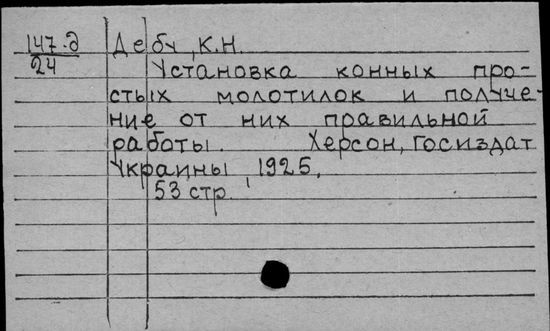 147-д Дебу, К.Н.
24
Установка конных про-
стых молотилок и получе-
ние от них правильной
работы. Херсон, Госиздат
Украины, 1925,
53 стр.